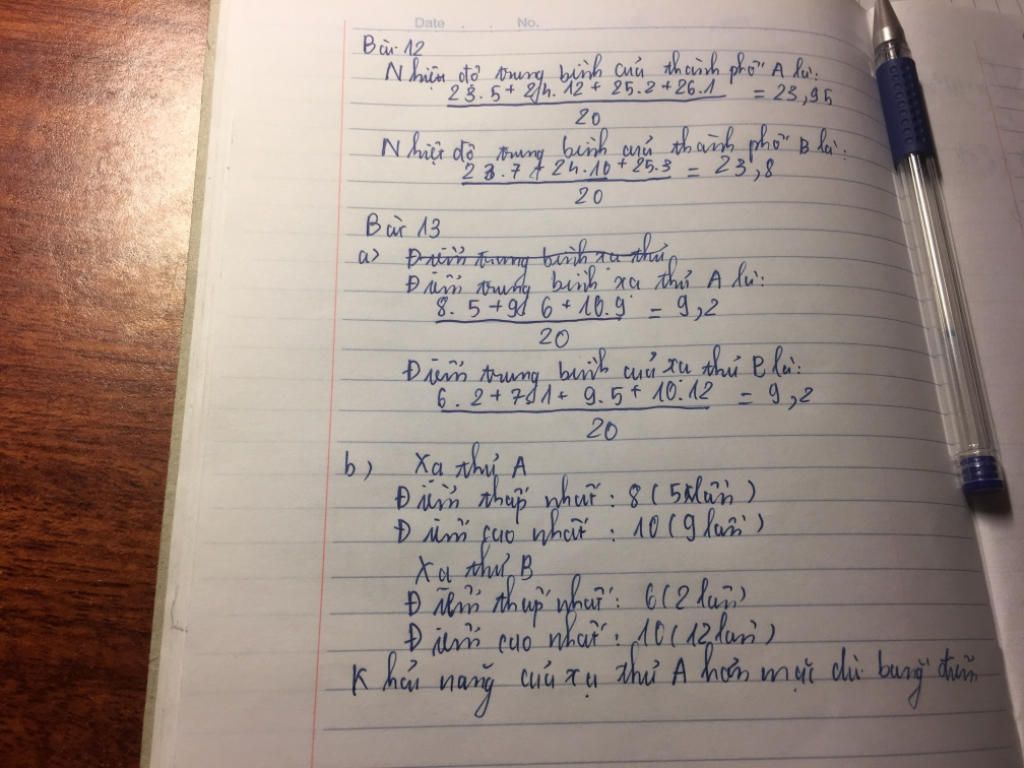 Date . . No.
Bài 12
Nhiện độ trung bình cuả thành phố A là:
23.5 + 24.12 + 25.2 + 26.1 = 23,95
20
Nhiệt độ trung bình cuả thành phố B là:
23.7 + 24.10 + 25.3 = 23,8
20
Bài 13
a) Điểm trung bình xạ thủ
Điểm trung bình xạ thủ A là:
8.5 + 9. 6 + 10.9 = 9,2
20
Điểm trung bình cuả xạ thủ B là:
6.2 + 7.1 + 9.5 + 10.12 = 9,2
20
b) Xạ thủ A
Điểm thấp nhất: 8 (5 lần)
Điểm cao nhất: 10 (9 lần)
Xạ thủ B
Điểm thấp nhất: 6 (2 lần)
Điểm cao nhất: 10 (12 lần)
Khả năng cuả xạ thủ A hơn mặc dù bằng điểm